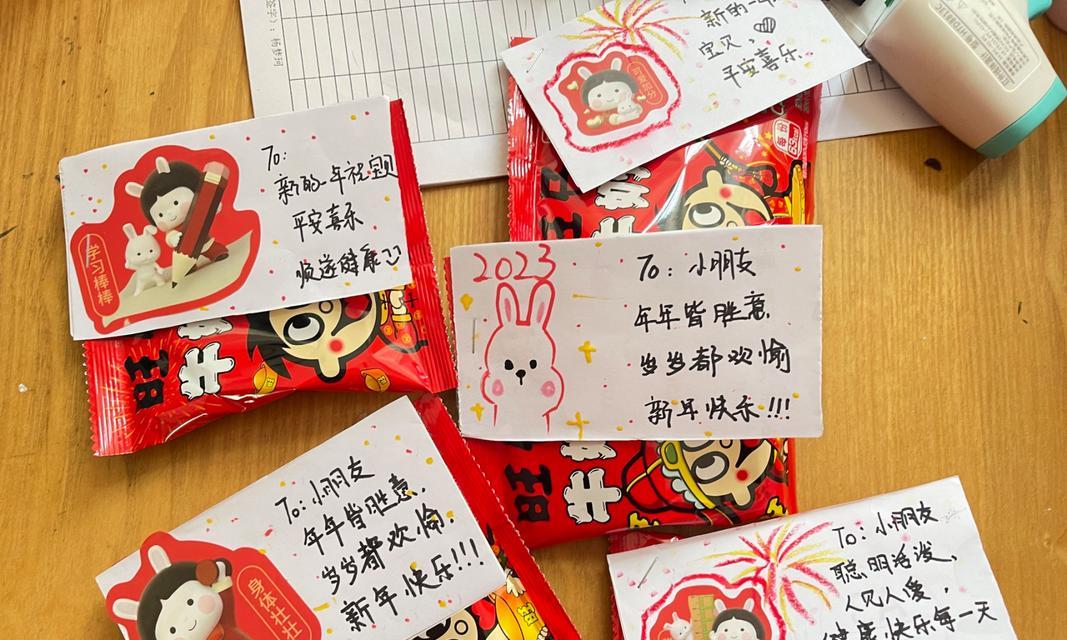 新的一年
宝贝，
平安喜乐
可爱加分
To:
新的一年祝宝贝
平安喜乐
顺遂健康
学习棒棒
旺
2023
To：小朋友
年年皆胜意，
岁岁都欢愉
新年快乐!!!
To：小朋友
年年皆胜意，
岁岁都欢愉，
新年快乐!!!
身体壮壮
To：小朋友
聪明活泼，
人见人爱，
健康快乐每一天